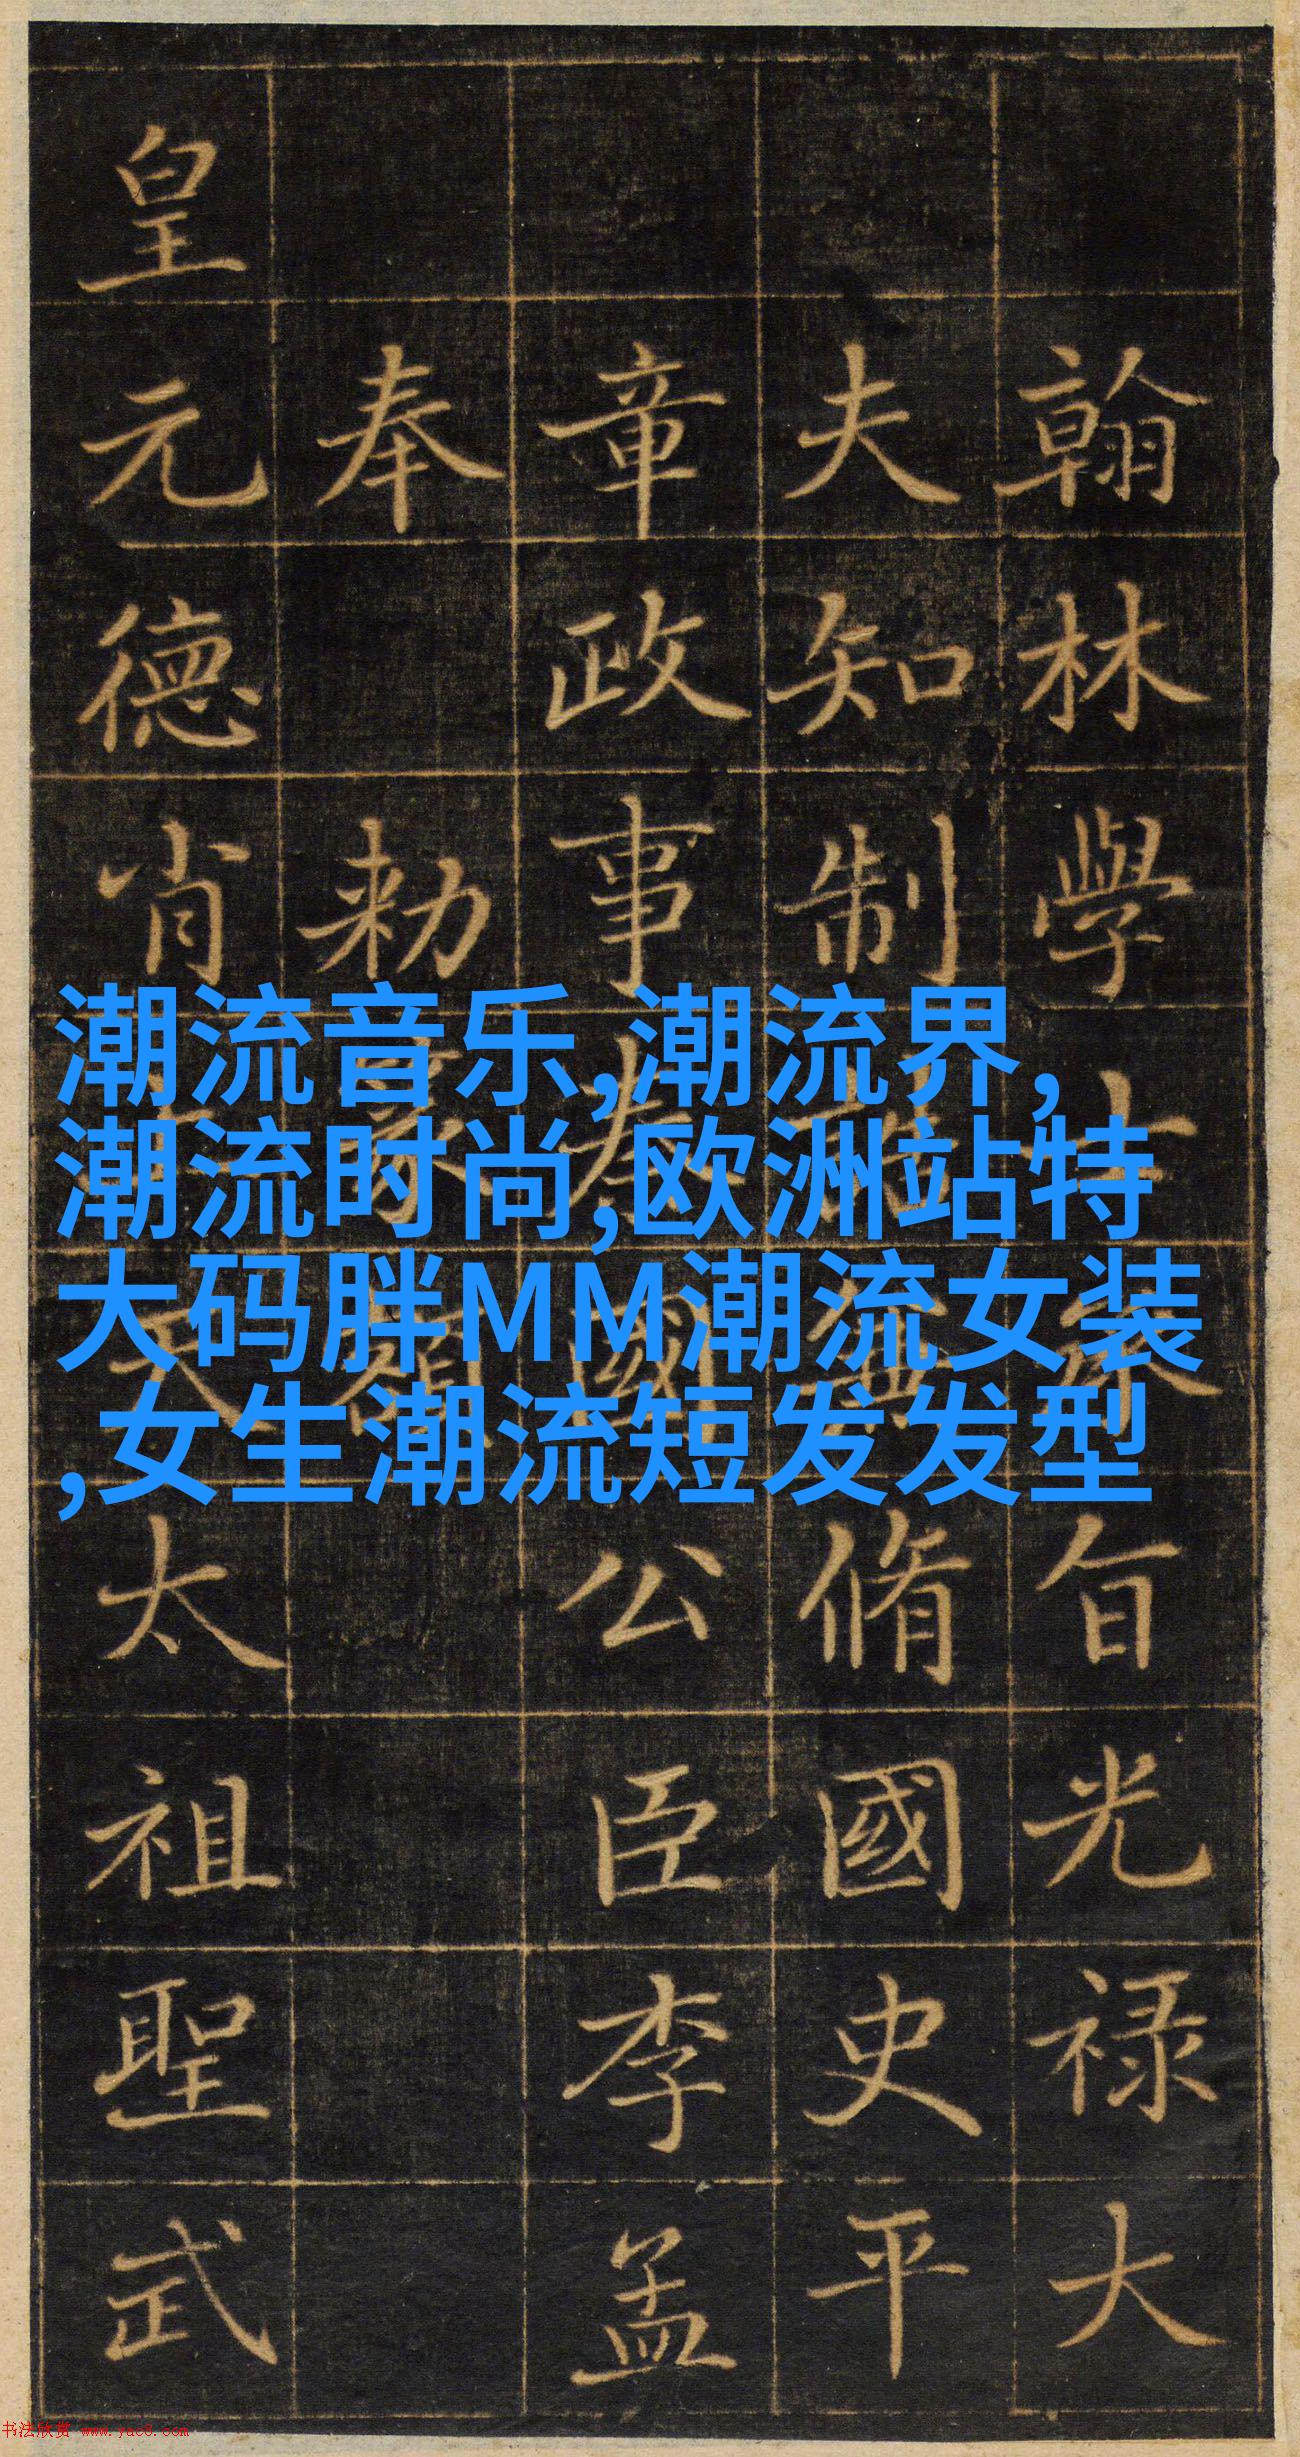 翰林學士旨光禄大
夫知制脩國史平
章政事秦國公臣李孟
奉勑篆額
皇元德肖天太祖聖武
潮流音乐,潮流界,
潮流时尚,欧洲站特
大码胖MM潮流女装
,女生潮流短发发型
书法欣赏 www.yac8.com